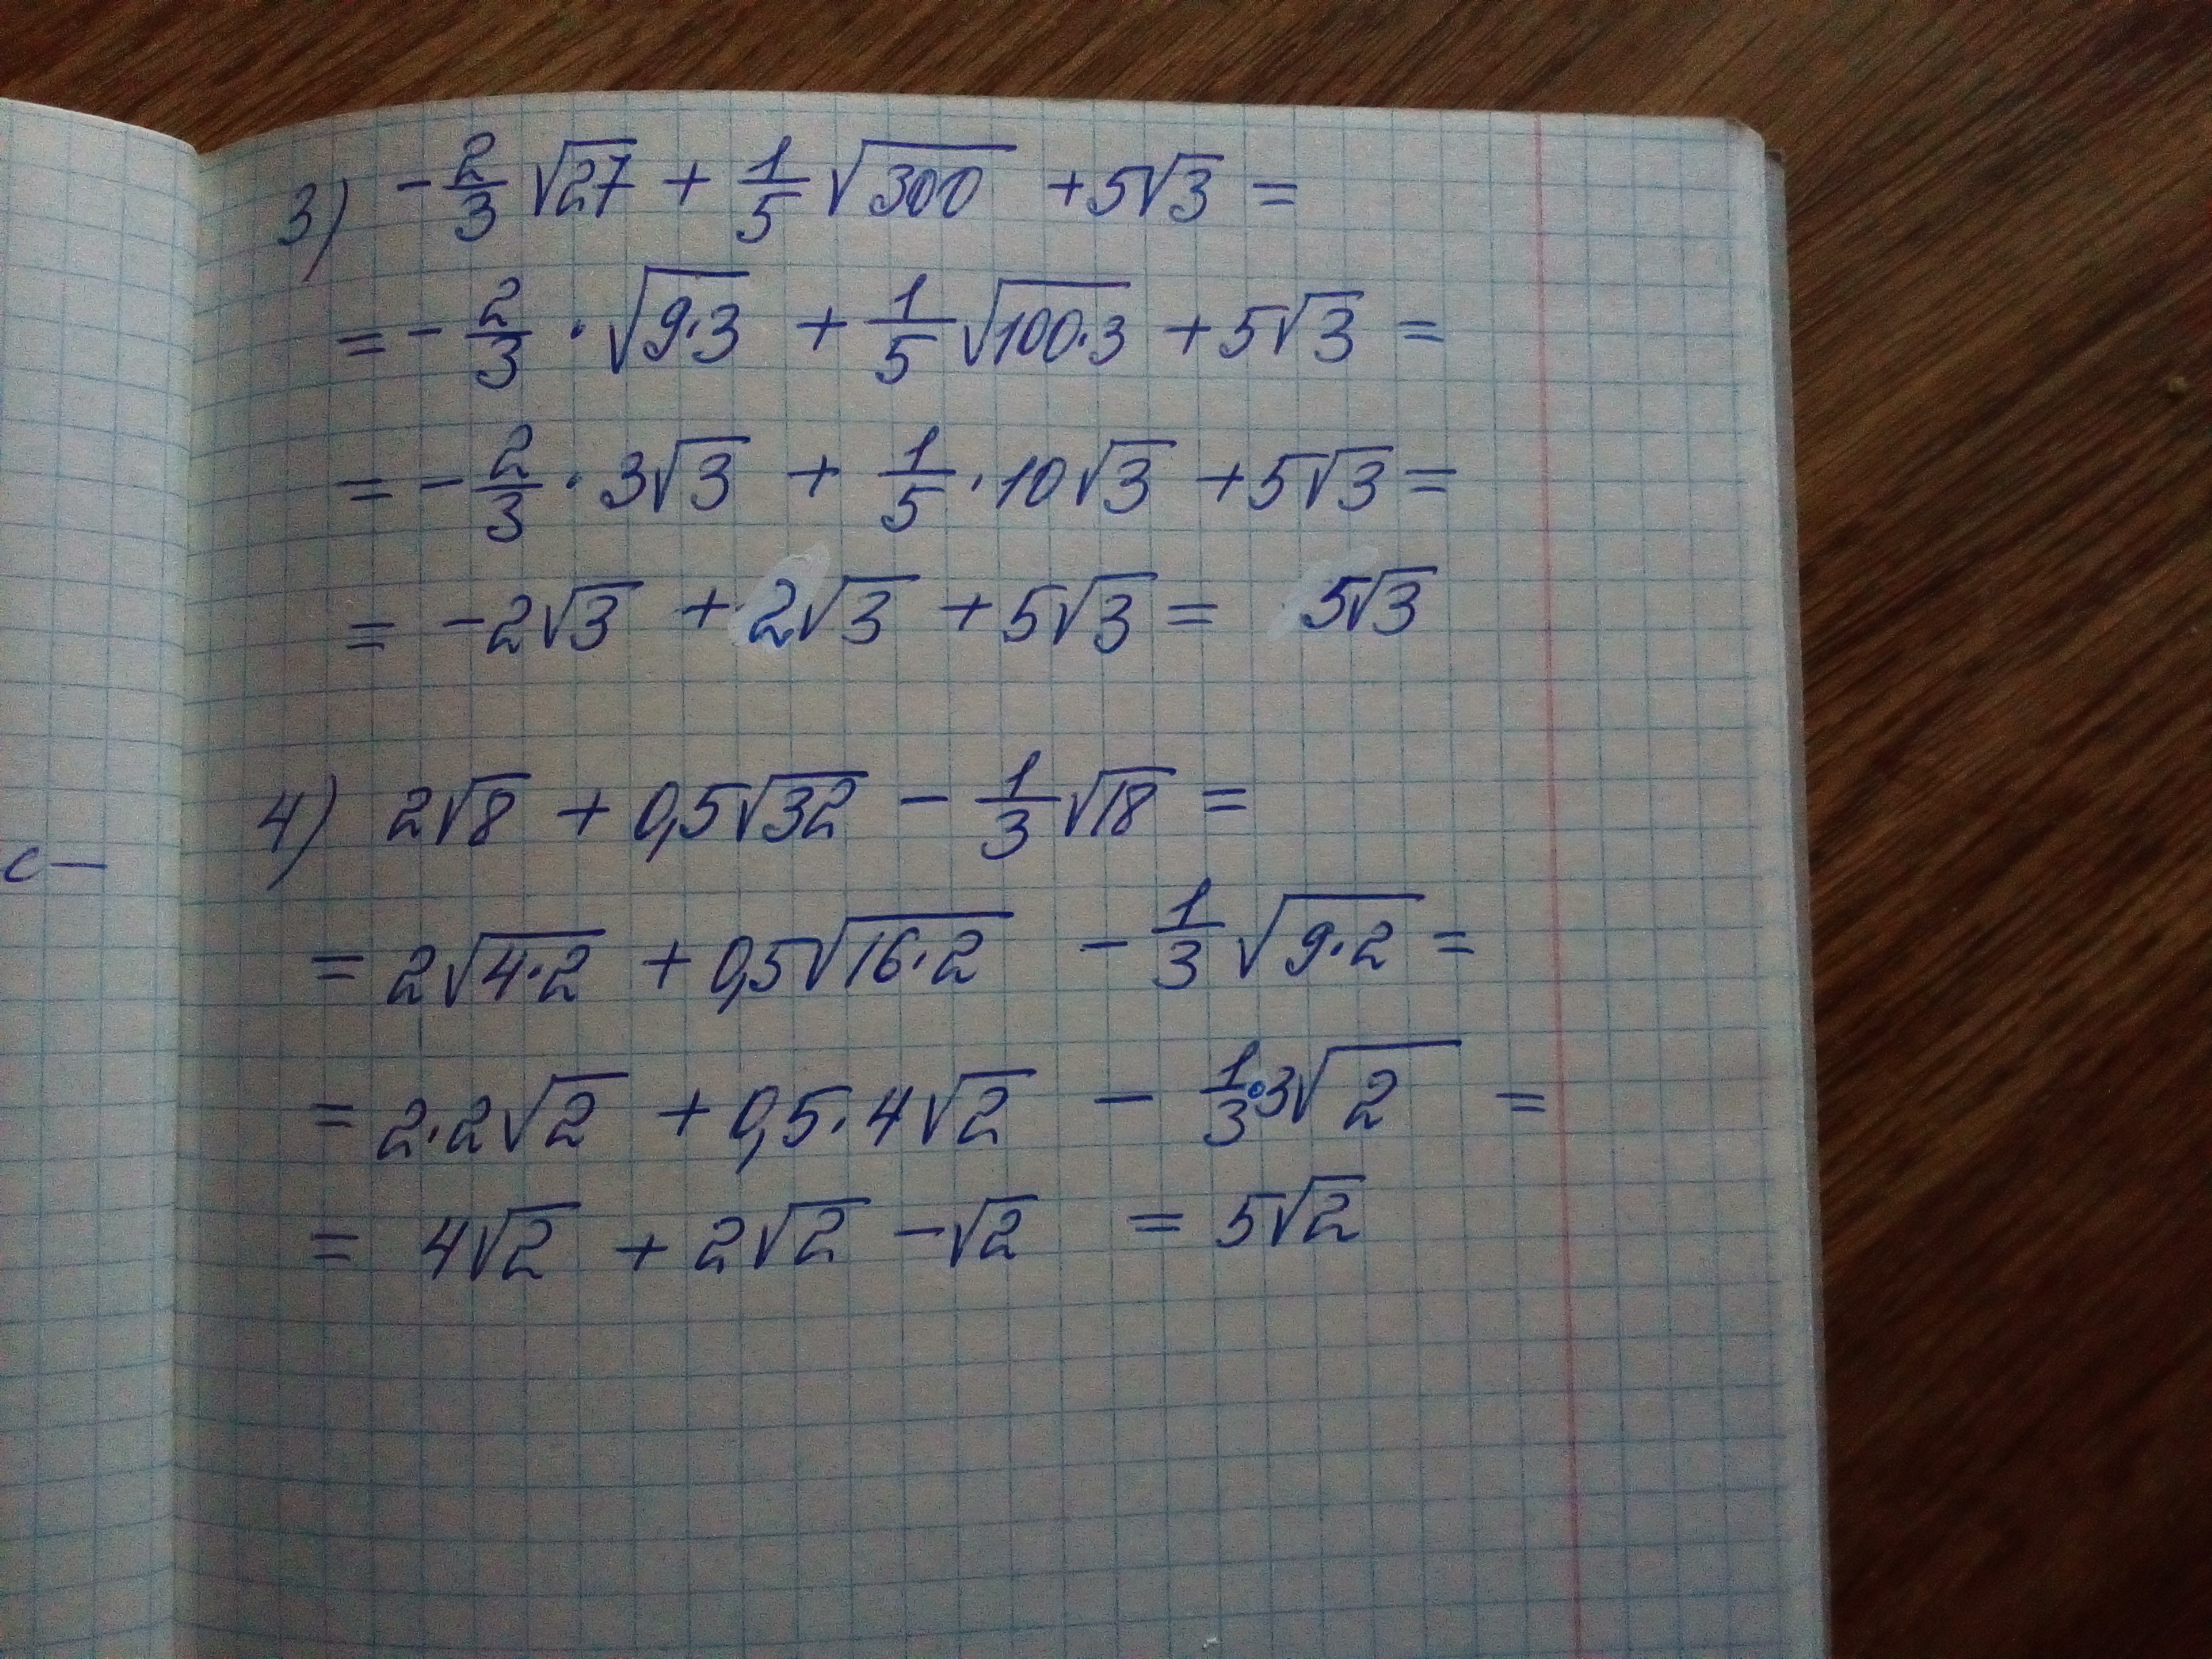 3) -2/3 √27 + 1/5 √300 + 5√3 =
= -2/3 · √9·3 + 1/5 √100·3 + 5√3 =
= -2/3 · 3√3 + 1/5 · 10√3 + 5√3 =
= -2√3 + 2√3 + 5√3 = 5√3
4) 2√8 + 0,5√32 - 1/3 √18 =
= 2√4·2 + 0,5√16·2 - 1/3 √9·2 =
= 2·2√2 + 0,5·4√2 - 1/3·3√2 =
= 4√2 + 2√2 - √2 = 5√2
с—